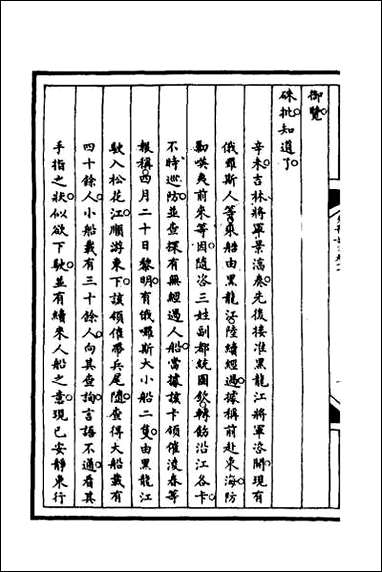 御覽
硃批知道了
辛未吉林將軍景淓奏先後接准黑龍江將軍咨開現有
俄羅斯人等乘船由黑龍江陸續經過據稱前赴東海防
勦㗎夷前來等因隨咨三姓副都統團欽轉飭沿江各卡
不時巡防並查探有無經過人船當據該卡領催淩春等
報稱四月二十日黎明有俄囉斯大小船二隻由黑龍江
駛入松花江順游東下該領催帶兵尾隨查得大船載有
四十餘人小船載有三十餘人向其查詢言語不通看其
手指之狀似欲下駛並有續來人船之意現已安靜東行